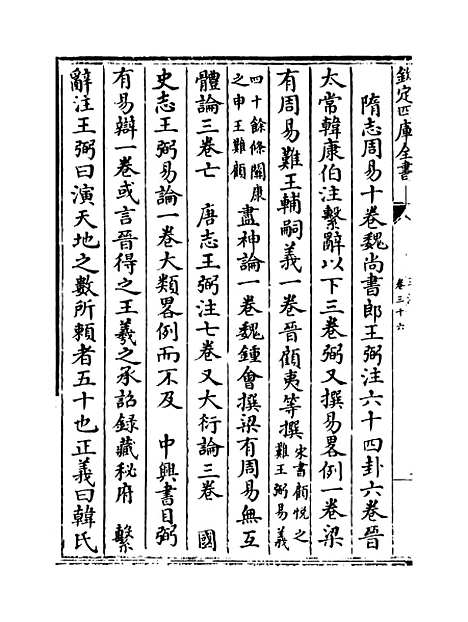 欽定四庫全書
卷三十六
隋志周易十卷魏尚書郎王弼注六十四卦六卷晉
太常韓康伯注繫辭以下三卷弼又撰易畧例一卷梁
有周易難王輔嗣義一卷晉顧夷等撰宋書顧悅之難王弼易義
四十餘條關康之申王難顧盡神論一卷魏鍾會撰梁有周易無互
體論三卷亡　唐志王弼注七卷又大衍論三卷　國
史志王弼易論一卷大類畧例而不及　中興書目弼
有易辯一卷或言晉得之王羲之承詔録藏秘府　繫
辭注王弼曰演天地之數所頼者五十也正義曰韓氏